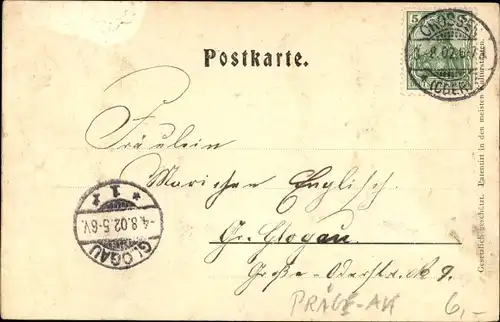 Postkarte.
5
CROSSEN
8.02.6-7
(ODER)
Fräulein
Mariechen Englisch.
Gr. Glogau.
Große-Oderstr. № 9.
* 1 *
-4.8.02.5-6V.
GLOGAU
Gesetzlich geschützt. Patentirt in den meisten Kulturstaaten.
PRÄGE-AK
6,-